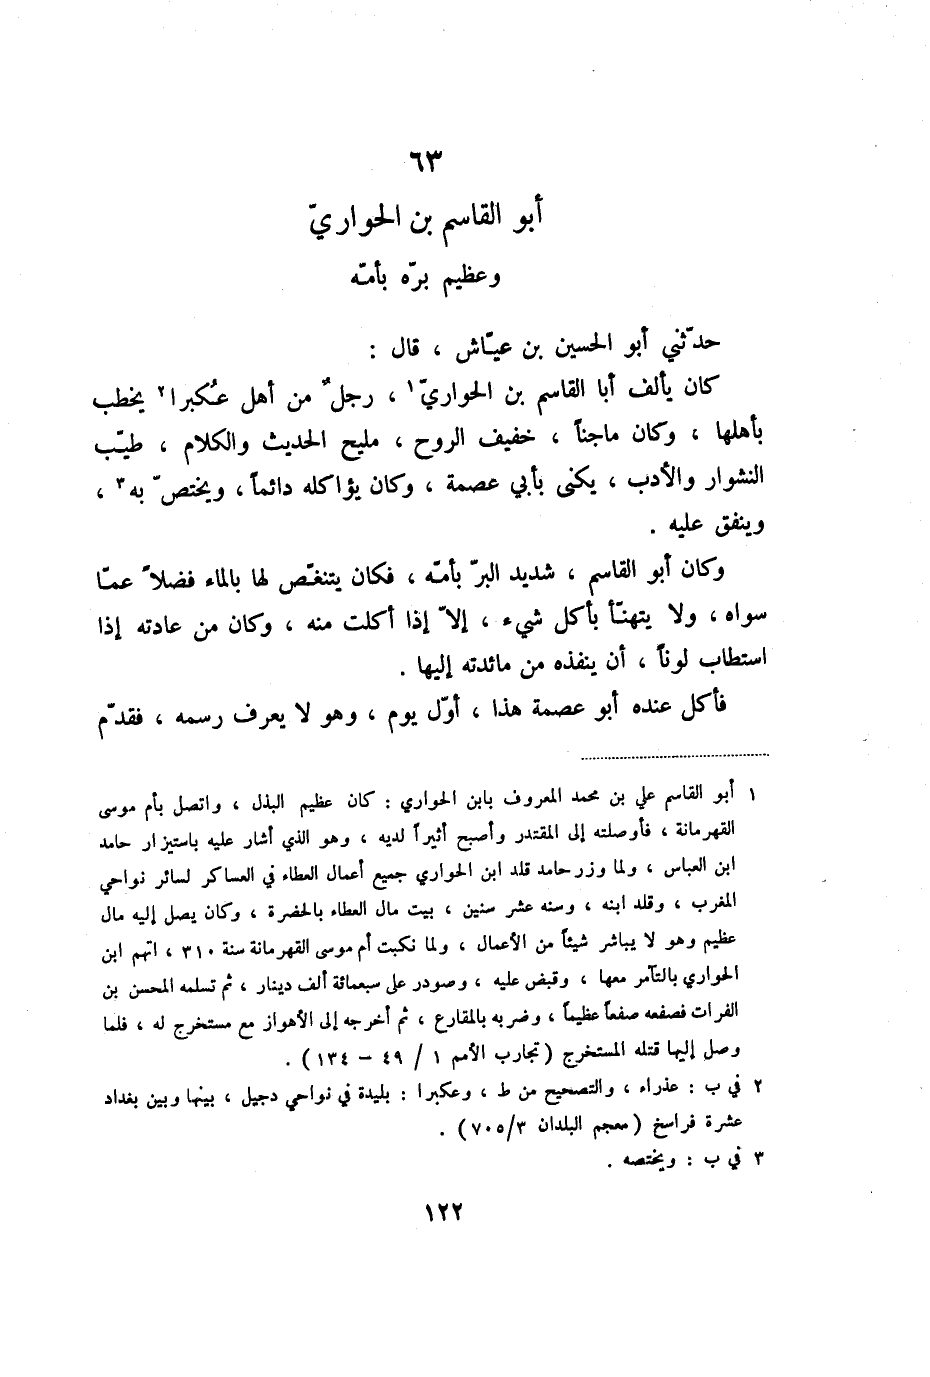 ٦٣
أبو القاسم بن الحواريّ
وعظيم برّه بأمّه
حدّثني أبو الحسين بن عيّاش ، قال :
كان يألف أبا القاسم بن الحواريّ١ ، رجلٌ من أهل عُكبرا٢ يخطب
بأهلها ، وكان ماجناً ، خفيف الروح ، مليح الحديث والكلام ، طيّب
النشوار والأدب ، يكنى بأبي عصمة ، وكان يؤاكله دائماً ، ويختصّ به٣ ،
وينفق عليه .
وكان أبو القاسم ، شديد البرّ بأمّه ، فكان يتنغّص لها بالماء فضلاً عمّا
سواه ، ولا يتهنّأ بأكل شيء ، إلاّ إذا أكلت منه ، وكان من عادته إذا
استطاب لوناً ، أن ينفذه من مائدته إليها .
فأكل عنده أبو عصمة هذا ، أوّل يوم ، وهو لا يعرف رسمه ، فقدّم
١ أبو القاسم علي بن محمد المعروف بابن الحواري : كان عظيم البذل ، واتصل بأم موسى
القهرمانة ، فأوصلته إلى المقتدر وأصبح أثيراً لديه ، وهو الذي أشار عليه باستيزار حامد
ابن العباس ، ولما وزر حامد قلد ابن الحواري جميع أعمال العطاء في العساكر لسائر نواحي
المغرب ، وقلد ابنه ، وسنه عشر سنين ، بيت مال العطاء بالحضرة ، وكان يصل إليه مال
عظيم وهو لا يباشر شيئاً من الأعمال ، ولما نكبت أم موسى القهرمانة سنة ٣١٠ ، اتهم ابن
الحواري بالتآمر معها ، وقبض عليه ، وصودر على سبعمائة ألف دينار ، ثم تسلمه المحسن بن
الفرات فصفعه صفعاً عظيماً ، وضربه بالمقارع ، ثم أخرجه إلى الأهواز مع مستخرج له ، فلما
وصل إليها قتله المستخرج ( تجارب الأمم ١ / ٤٩ – ١٣٤ ) .
٢ في ب : عذراء ، والتصحيح من ط ، وعكبرا : بليدة في نواحي دجيل ، بينها وبين بغداد
عشرة فراسخ ( معجم البلدان ٧٠٥/٣ ) .
٣ في ب : ويختصه .
١٢٢